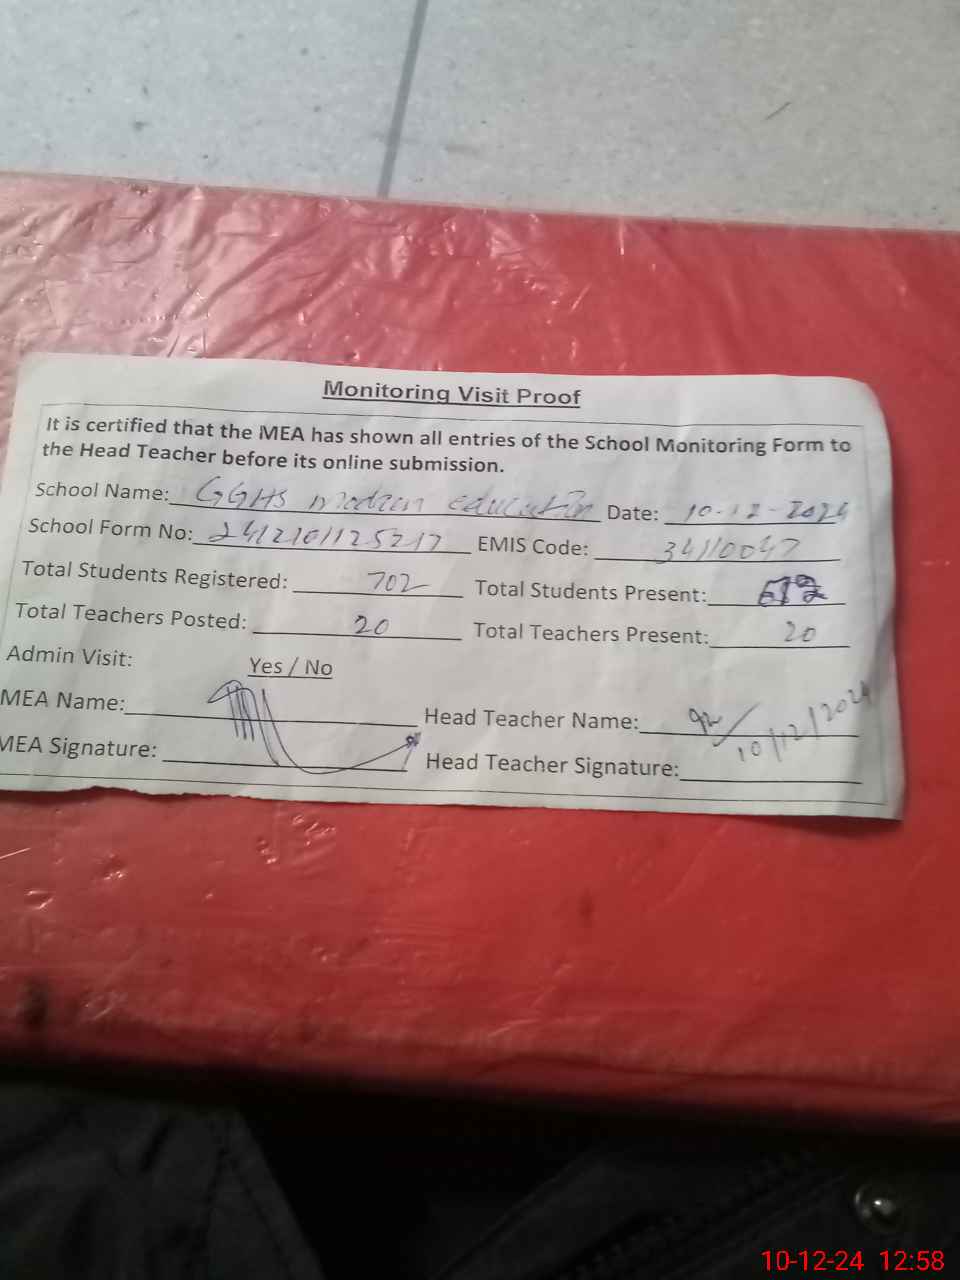 Monitoring Visit Proof
It is certified that the MEA has shown all entries of the School Monitoring Form to
the Head Teacher before its online submission.
School Name: GGHS modern education Date: 10-12-2024
School Form No: 2412101125217 EMIS Code: 34110047
Total Students Registered: 702 Total Students Present:
Total Teachers Posted: 20 Total Teachers Present: 20
Admin Visit: Yes / No
MEA Name: Head Teacher Name:
10/12/2024
MEA Signature: Head Teacher Signature:
10-12-24 12:58